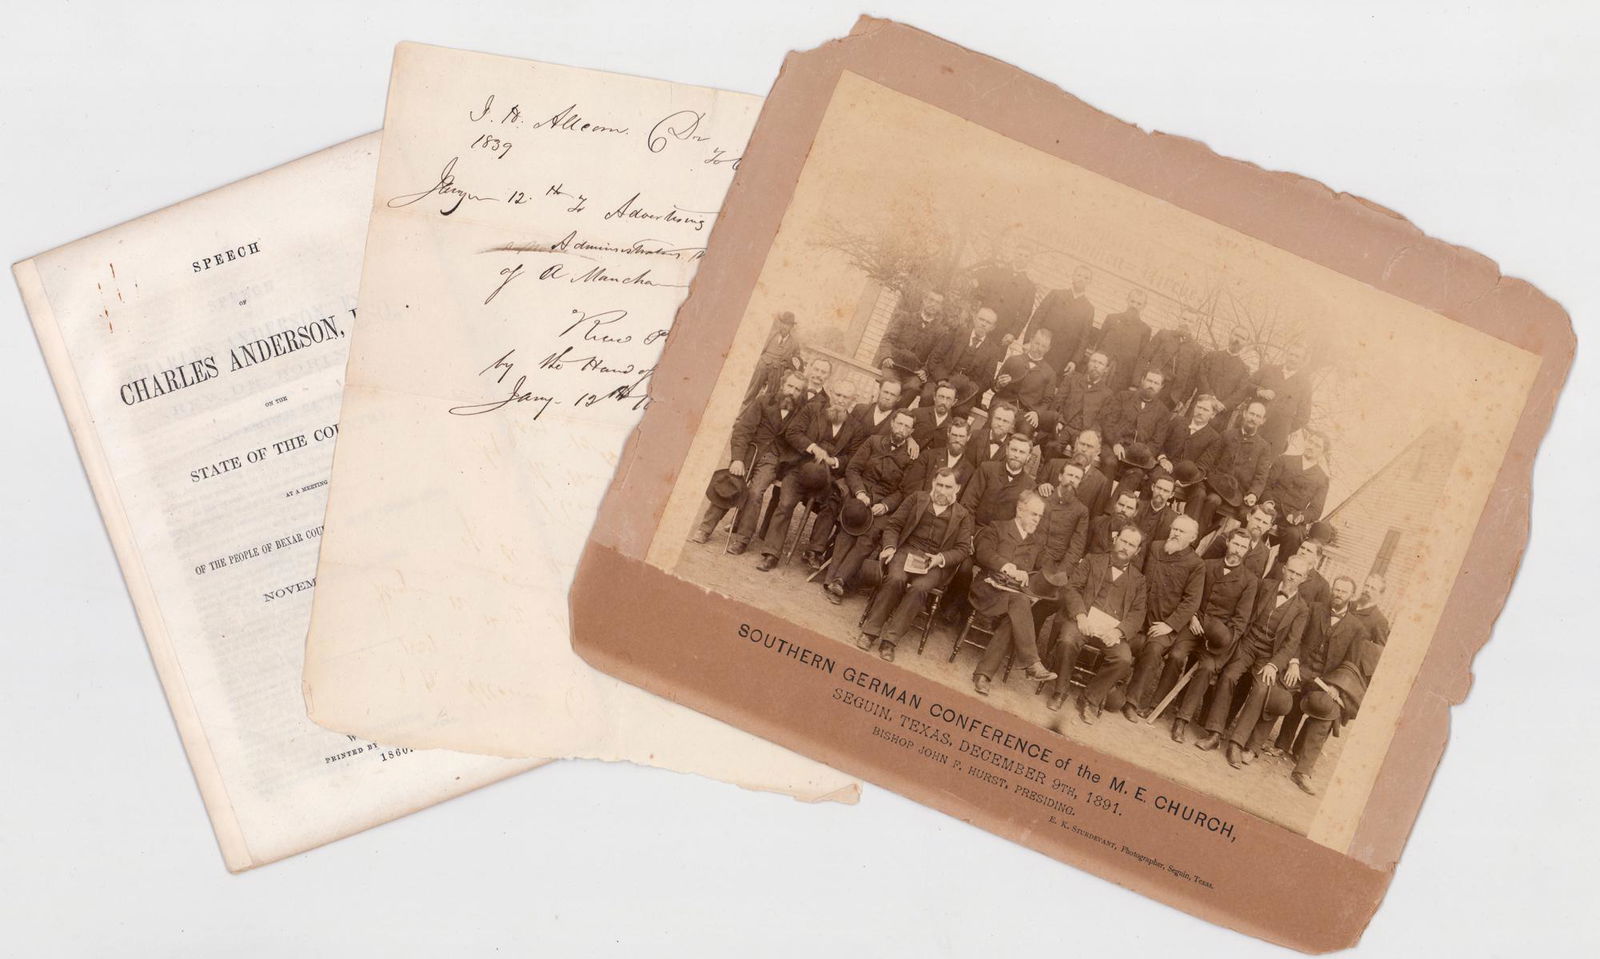 SPEECH
OF
CHARLES ANDERSON,
ON THE
STATE OF THE
AT A MEETING
OF THE PEOPLE OF BEXAR
PRINTED BY
1860.
J. H. Allcorn. Dr
1839
12. th To Advertising
Administrators
of A
by the Hand of
Jany. 12th
SOUTHERN GERMAN CONFERENCE of the M. E. CHURCH,
SEGUIN, TEXAS, DECEMBER 9TH, 1891.
BISHOP JOHN F. HURST, PRESIDING.
E. K. STURDEVANT, Photographer, Seguin, Texas.